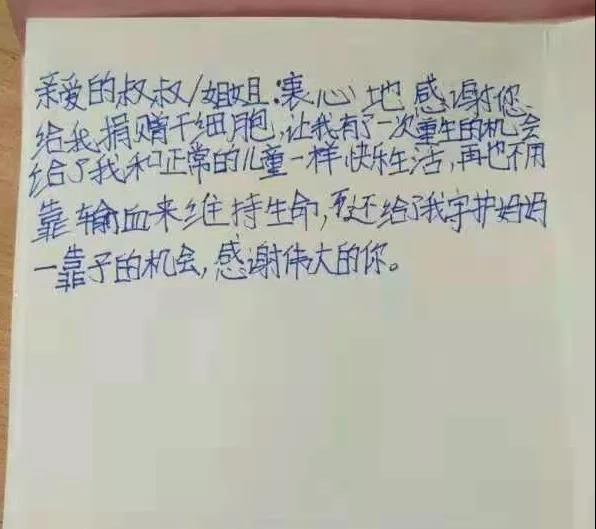 亲爱的叔叔/姐姐:衷心地感谢您
给我捐赠干细胞,让我有了一次重生的机会
给了我和正常的儿童一样快乐生活,再也不用
靠输血来维持生命,还给了我守护妈妈
一靠子的机会,感谢伟大的你。